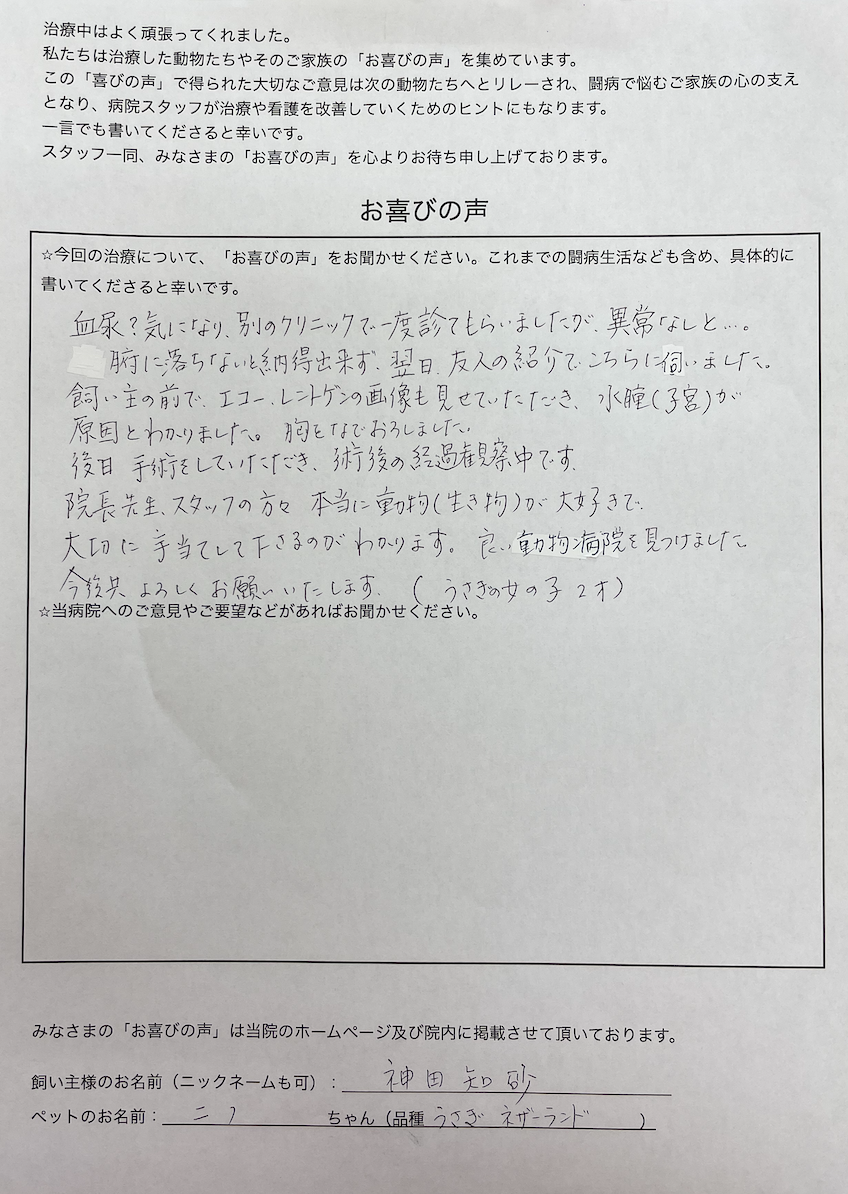 治療中はよく頑張ってくれました。
私たちは治療した動物たちやそのご家族の「お喜びの声」を集めています。
この「喜びの声」で得られた大切なご意見は次の動物たちへとリレーされ、闘病で悩むご家族の心の支え
となり、病院スタッフが治療や看護を改善していくためのヒントにもなります。
一言でも書いてくださると幸いです。
スタッフ一同、みなさまの「お喜びの声」を心よりお待ち申し上げております。
お喜びの声
☆今回の治療について、「お喜びの声」をお聞かせください。これまでの闘病生活なども含め、具体的に
書いてくださると幸いです。
血尿?気になり、別のクリニックで一度診てもらいましたが、異常なしと…。
腑に落ちないと納得出来ず、翌日、友人の紹介でこちらに伺いました。
飼い主の前で、エコー、レントゲンの画像も見せていただき、水腫(子宮)が
原因とわかりました。胸をなでおろしました。
後日 手術をしていただき、術後の経過観察中です。
院長先生、スタッフの方々 本当に動物(生き物)が大好きで、
大切に手当てして下さるのがわかります。良い動物病院を見つけました。
今後共 よろしくお願いいたします。(うさぎの女の子 2才)
☆当病院へのご意見やご要望などがあればお聞かせください。
みなさまの「お喜びの声」は当院のホームページ及び院内に掲載させて頂いております。
飼い主様のお名前（ニックネームも可）：神田 知砂
ペットのお名前：ニノ ちゃん（品種 うさぎ ネザーランド ）